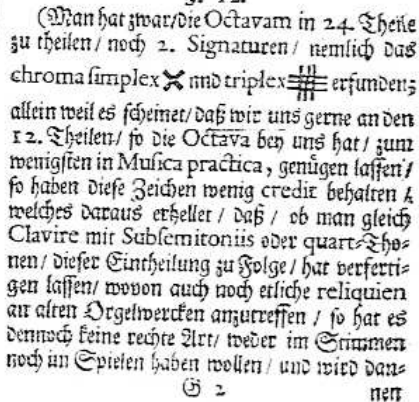 (Man hat zwar/die Octavam in 24. Theile
zu theilen/ noch 2. Signaturen/ nemlich das
chroma simplex und triplex erfunden;
allein weil es scheinet/ daß wir uns gerne an den
12. Theilen/ so die Octava bey uns hat/ zum
wenigsten in Musica practica, genügen lassen/
so haben diese Zeichen wenig credit behalten /
welches daraus erhellet / daß / ob man gleich
Clavire mit Subsemitoniis oder quart-Tho-
nen/ dieser Eintheilung zu Folge/ hat verferti-
gen lassen/ wovon auch noch etliche reliquien
an alten Orgelwercken anzutreffen / so hat es
dennoch keine rechte Art/ weder im Stimmen
noch im Spielen haben wollen/ und wird dan-
G 2 nen